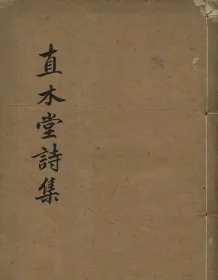 直木堂詩集